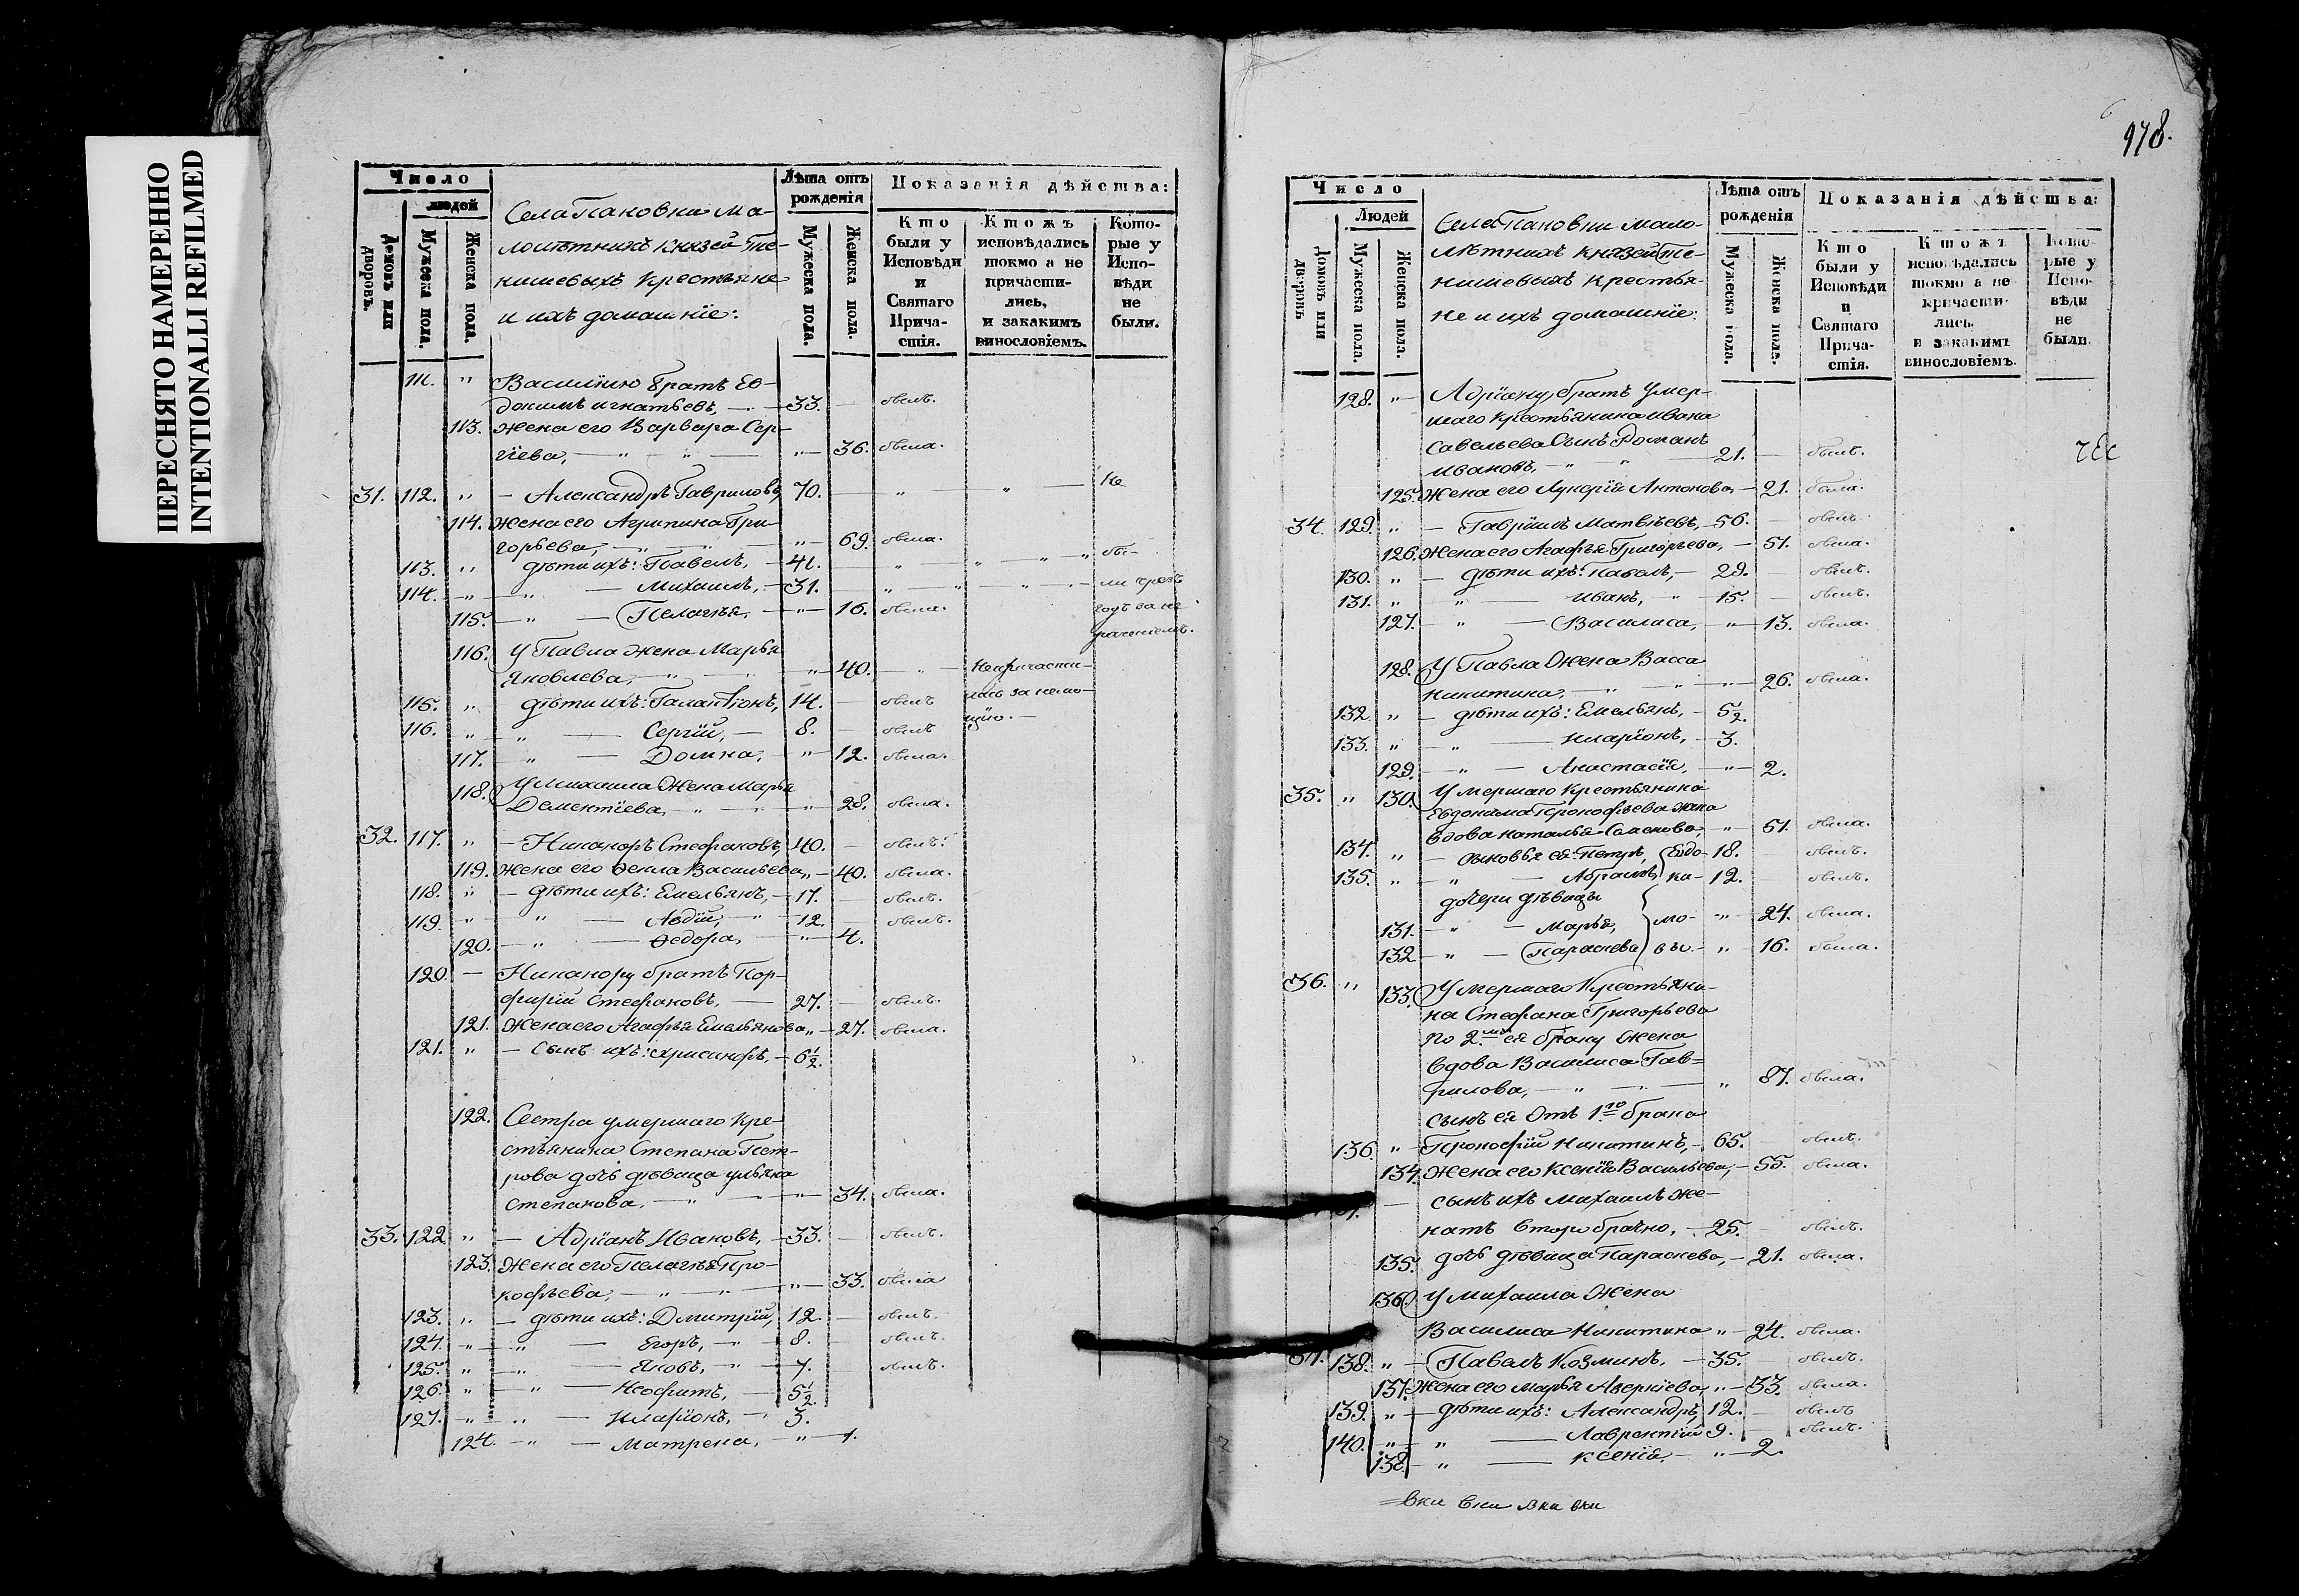 ПЕРЕСНЯТО НАМЕРЕННО
INTENTIONALLI REFILMED
Число
людей
Домовъ или дворовъ.
Мужеска пола.
Женска пола.
Села Пановки ма-
лолѣтнихъ Князей Те-
нишевыхъ Крестьяне
и ихъ домашнїе:
Лѣта отъ рожденія
Мужеска пола.
Женска пола.
Показанія дѣйства:
Кто были у Исповѣди и Святаго Прича-стія.
Ктожъ исповѣдались токмо а не причасти-лись, и закакимъ винословіемъ.
Кото-рые у Испо-вѣди не были.
111. " Василїю братъ Ев-
докимъ Игнатьевъ, 33. — былъ.
113. Жена его Варвара Сер-
гїева, " 36. была.
31. 112. " Александръ Гавриловъ, 70. — " — " — Не
114. Жена его Агрипина Гри-
горьева, " 69. была.
113. " дѣти ихъ: Павелъ, 41. " " " бы-
114. " " — Михаилъ, 31. " " ли чрезъ
115. " — Пелагѣя, " 16. была. годъ за не
раченїемъ.
116. У Павла жена Марья
Яковлева, " 40. — Непричасти-
115. " дѣти ихъ: Галактїонъ, 14. — былъ лась за немо-
116. " " — Сергїй, 8. — былъ щїю.
117. " — Домна, " 12. была.
118. У Михаила Жена Марья
Дементїева, " 28. была.
32. 117. " — Никаноръ Стефановъ, 40. — былъ.
119. Жена его Ѳекла Васильева, " 40. была.
118. " — дѣти ихъ: Емельянъ, 17. — былъ.
119. " " — Авдїй, " 12. — былъ.
120. " — Ѳедора, " 4.
120 — Никанору братъ Пор-
фирїй Стефановъ, 27. — былъ.
121. Жена его Агафья Емельянова, " 27. была.
121. " — Сынъ ихъ: Хрисанфъ, 6½.
122. Сестра умершаго Кре-
стьянина Степана Пет-
рова дочь дѣвица Ульяна
Степанова, " 34. была.
33. 122. " — Адрїанъ Ивановъ, 33. — былъ.
123. Жена его Пелагѣя Про-
кофьева, " 33. была
123. " — дѣти ихъ: Дмитрїй, 12. — былъ.
124. " " — Егоръ, 8. — былъ.
125. " " — Яковъ, 7. былъ.
126. " " — Неофитъ, 5½.
127. " " — Иларїонъ, 3.
124. " — Матрена, " 1.
978.
Число
Людей
Домовъ или дворовъ
Мужеска пола.
Женска пола.
Села Пановки мало-
лѣтнихъ Князей Те-
нишевыхъ Крестья-
не и ихъ домашнїе:
Лѣта отъ рожденія
Мужеска пола.
Женска пола.
Показанія дѣйства:
Кто были у Исповѣди и Святаго Прича-стія.
Ктожъ исповѣдались токмо а не причасти-лись, и закакимъ винословіемъ.
Кото-рые у Испо-вѣди не были.
128. " Адрїану братъ умер-
шаго Крестьянина Ивана
Савельева Сынъ Романъ
Ивановъ, 21. — былъ.
125. Жена его Лукерїя Антонова, 21. была.
34. 129. " — Гаврїилъ Матвѣевъ, 56. — былъ.
126. Жена его Агафья Григорьева, 51. была.
130. " — дѣти ихъ: Павелъ, 29. — былъ.
131. " " — Иванъ, " 15. — былъ.
127. " — Василиса, " 13. была.
128. У Павла Жена Васса
Никитина, " 26. была.
132 " — дѣти ихъ: Емельянъ, 5½.
133. " " — Иларїонъ, 3.
129. " — Анастасїя, " 2.
35. " 130. Умершаго Крестьянина
Евдокима Прокофьева жена
Вдова Наталья Семенова, " 51. была.
134. " — Сыновья ея: Петръ, Евдо- 18. — былъ.
135. " " — Абрамъ, ки- 12. — былъ.
дочери дѣвицы
131. " — Марья, мо- " 24. была.
132 " — Параскева вы. " 16. была.
36. " 133. Умершаго Крестьяни-
на Стефана Григорьева
по 2.му ея браку Жена
Вдова Василиса Гав-
рилова, " 87. была.
Сынъ ея Отъ 1го брака
136. " Прокофїй Никитинъ, 65. — былъ.
134. Жена его Ксенїя Васильева, 55. была.
— Сынъ ихъ Михаилъ Же-
натъ Второбрачно, 25. — былъ.
135. дочь дѣвица Параскева, 21. была.
136. У Михаила Жена
Василиса Никитина " 24. была.
37. 138. " — Павелъ Козминъ, 35. — былъ.
137. Жена его Марья Аверкїева, " 33 была.
139. " — дѣти ихъ: Александръ, 12. — былъ
140. " " — Лаврентїй 9. — былъ.
138. " — Ксенїя, " 2.
вки вки вки вки